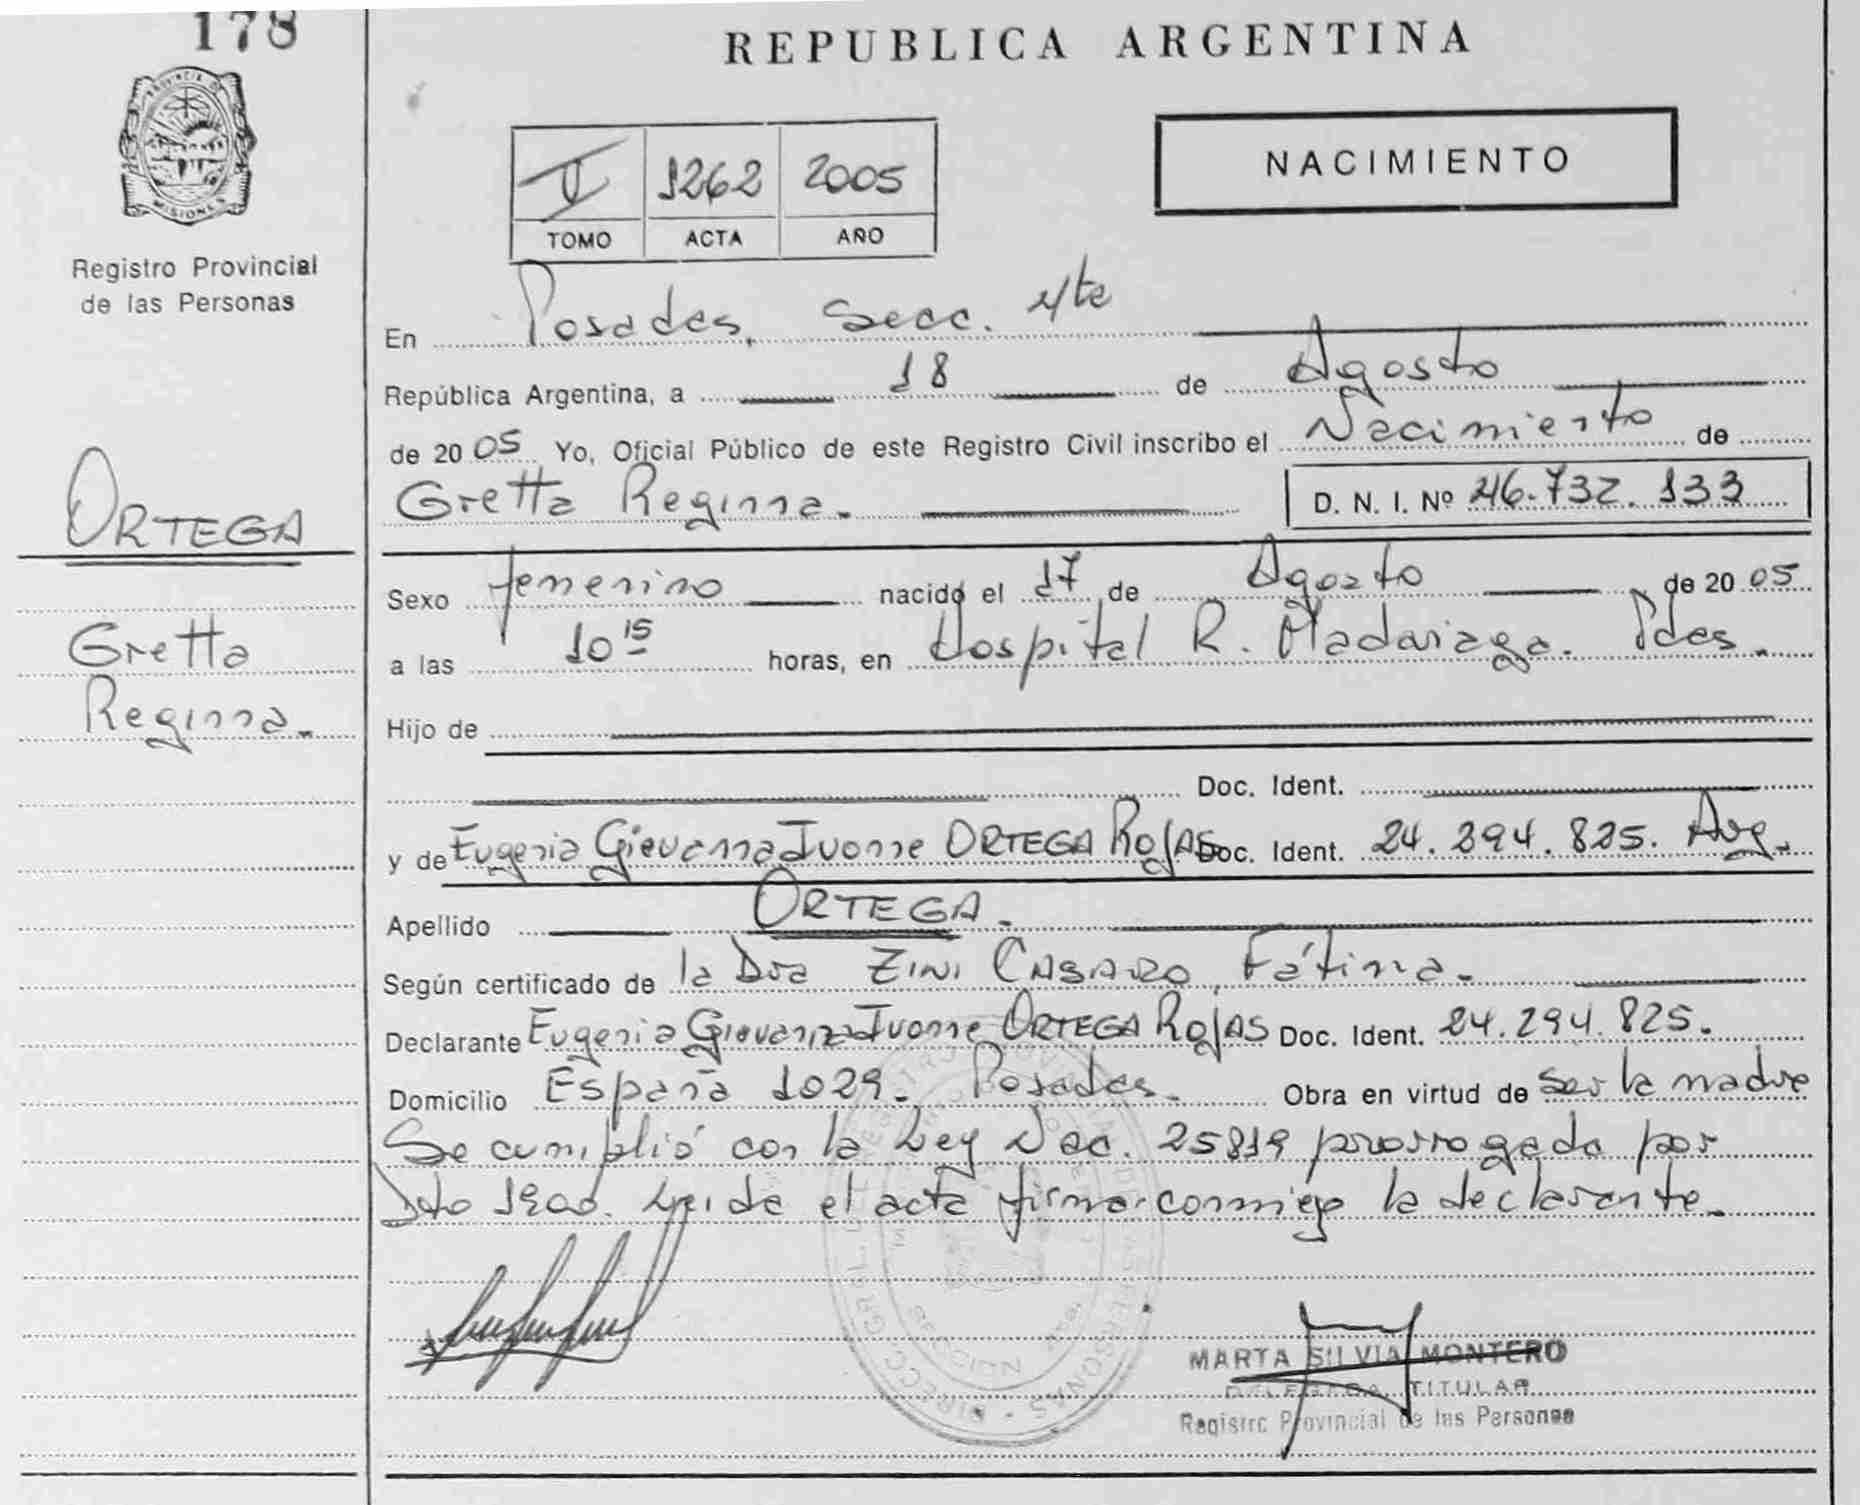 178
PROVINCIA DE
MISIONES
Registro Provincial
de las Personas
ORTEGA
Gretta
Reginna.
REPUBLICA ARGENTINA
NACIMIENTO
1262 2005
TOMO ACTA AÑO
En Posadas, Secc. 4te
República Argentina, a 18 de Agosto
de 2005 Yo, Oficial Público de este Registro Civil inscribo el Nacimiento de
Gretta Reginna. D. N. I. Nº 46.732.133
Sexo femenino nacido el 17 de Agosto de 2005
a las 10 15 horas, en Hospital R. Madariaga. Pdas.
Hijo de
Doc. Ident.
y de Eugenia Giovanna Ivonne ORTEGA ROJAS Doc. Ident. 24.294.825. Arg.
Apellido ORTEGA.
Según certificado de la Dra ZINI CASARO, Fátima.
Declarante Eugenia Giovanna Ivonne ORTEGA ROJAS Doc. Ident. 24.294.825.
Domicilio España 1029. Posadas. Obra en virtud de ser la madre
Se cumplió con la Ley Nac. 25819 prorrogada por
Dto Leida el acta firma conmigo la declarante.
MARTA SILVIA MONTERO
DELEGADA TITULAR
Registro Provincial de las Personas